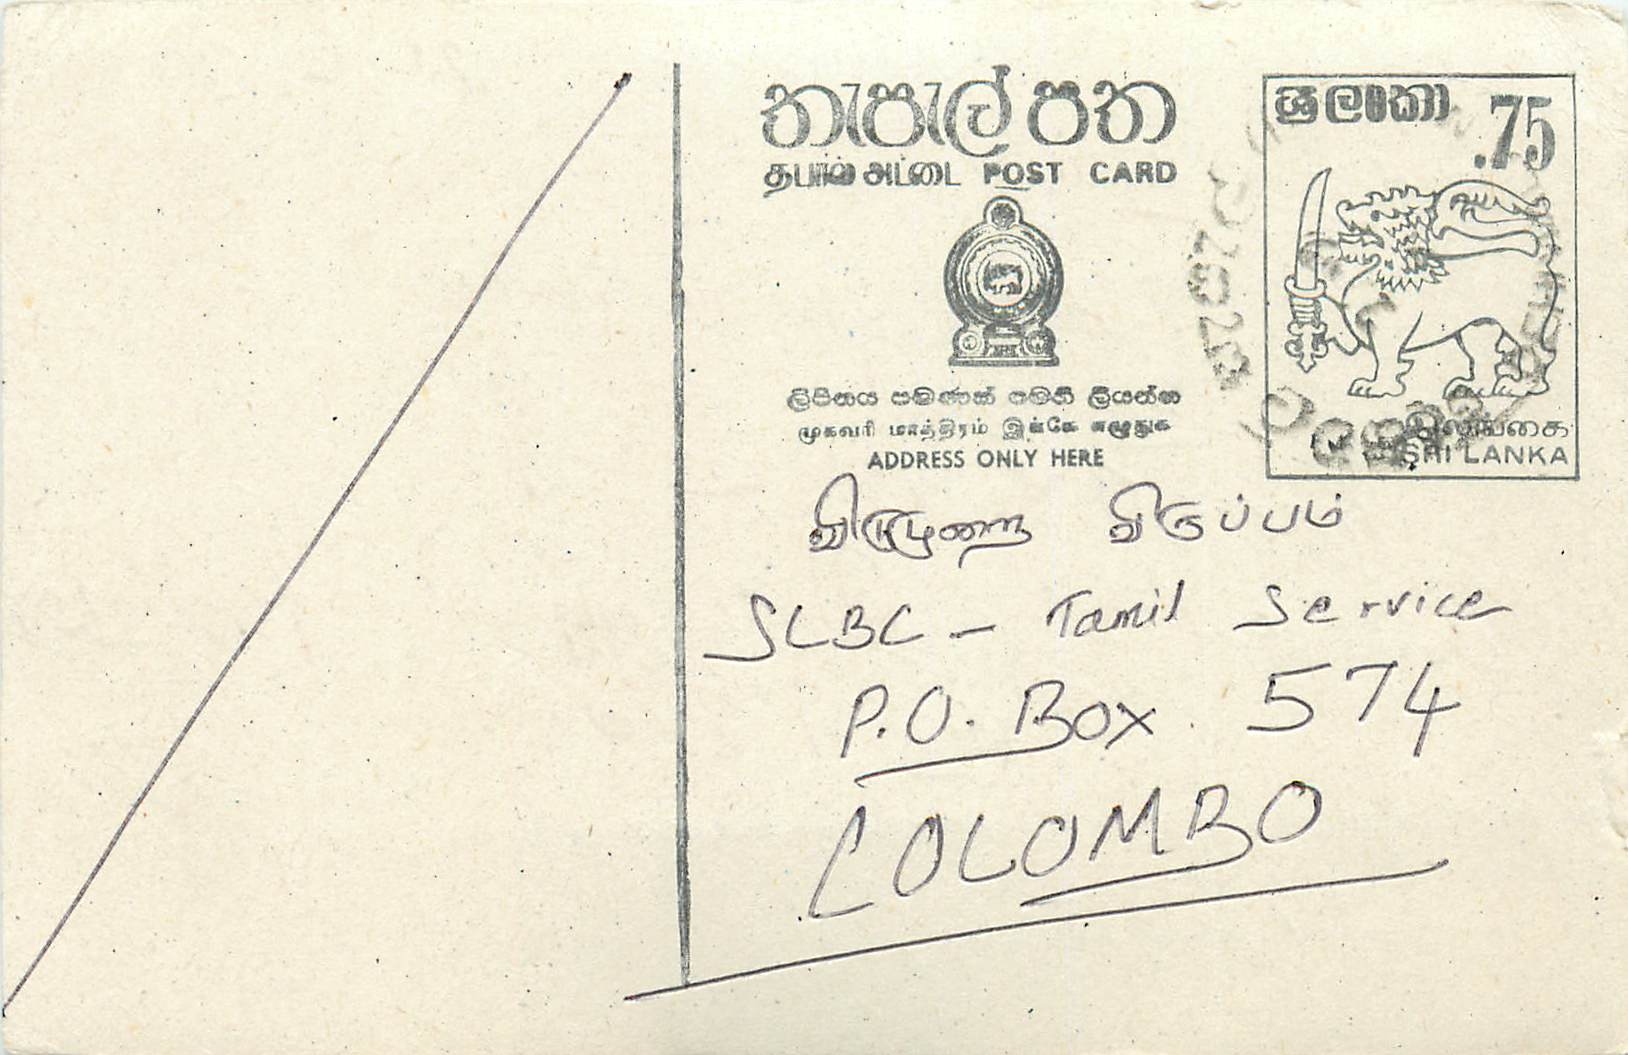 තැපැල් පත
தபால் அட்டை POST CARD
ලිපිනය පමණක් මෙහි ලියන්න
முகவரி மாத்திரம் இங்கே எழுதுக
ADDRESS ONLY HERE
ශ්‍රී ලංකා .75
இலங்கை
SHI LANKA
விருப்பம்
SLBC - Tamil Service
P.O. Box 574
COLOMBO